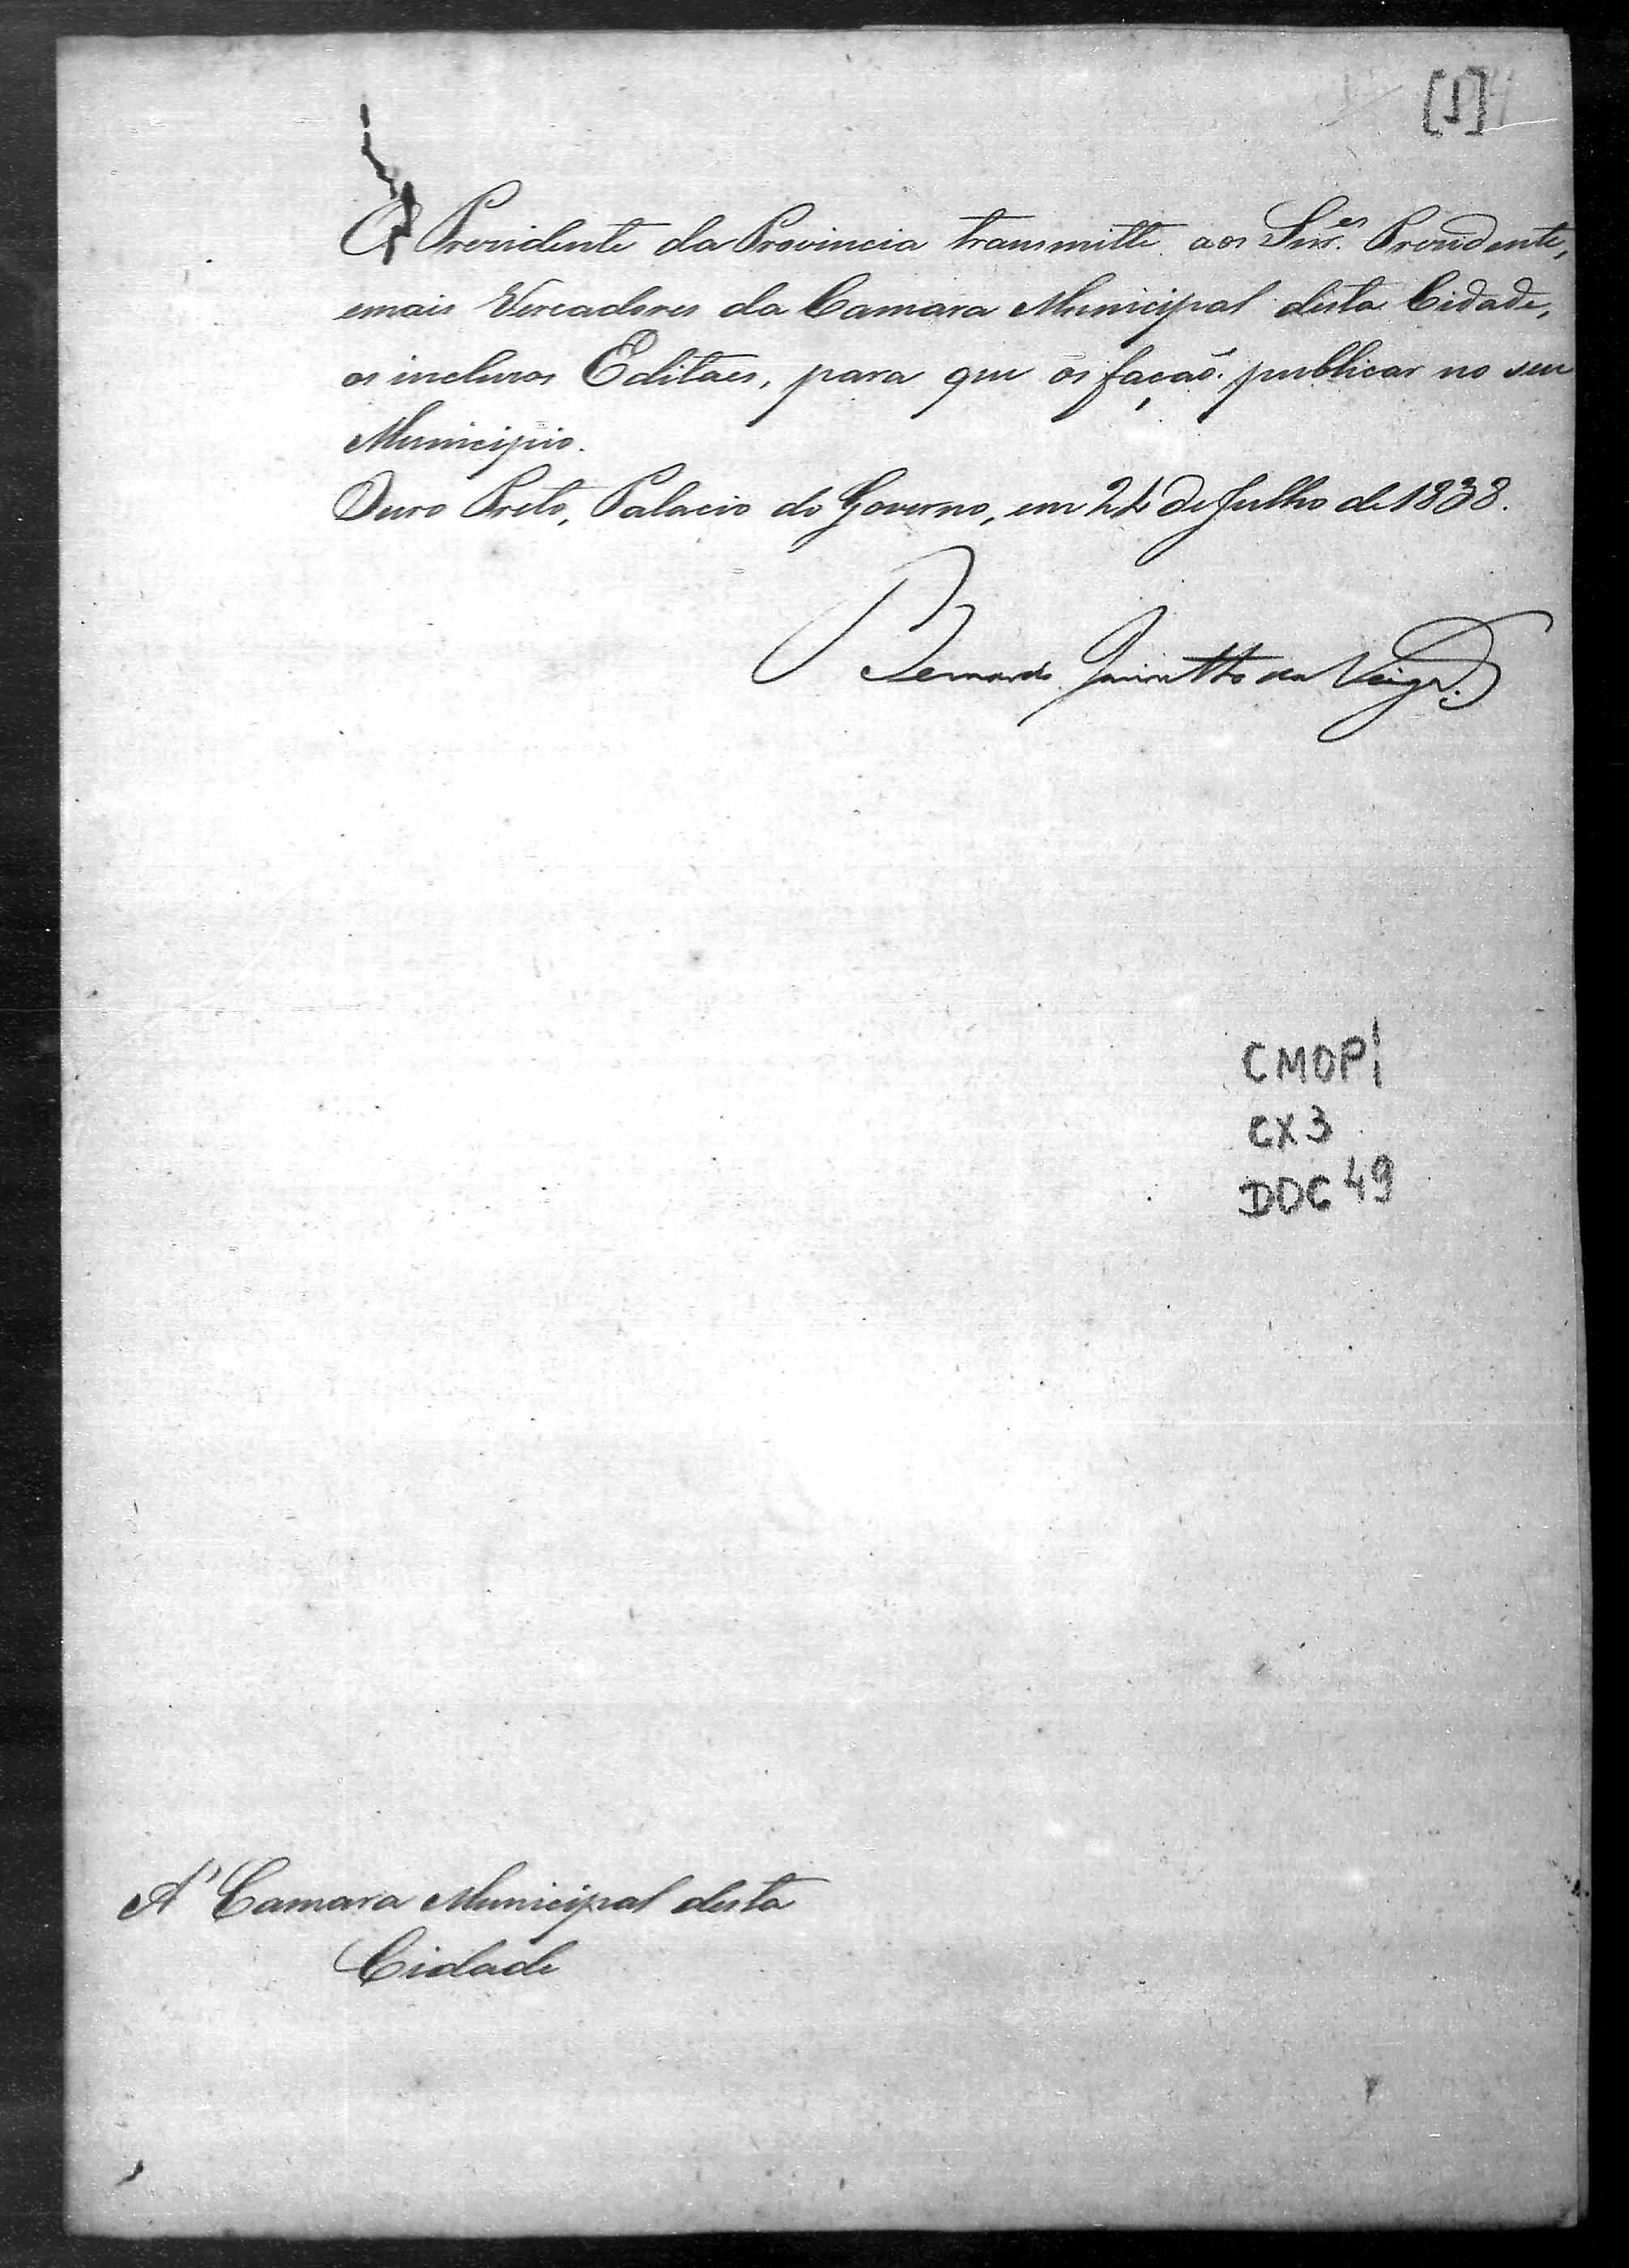 [1]
O Presidente da Provincia transmitte aos Snr.es Presidente,
emais Vereadores da Camara Municipal desta Cidade,
os inclusos Editaes, para que os façaõ publicar no seu
Municipio.
Ouro Preto, Palacio do Governo, em 24 de Julho de 1838.
Bernardo Jacintho da Veiga
CMOP
CX 3
DOC 49
A' Camara Municipal desta
Cidade